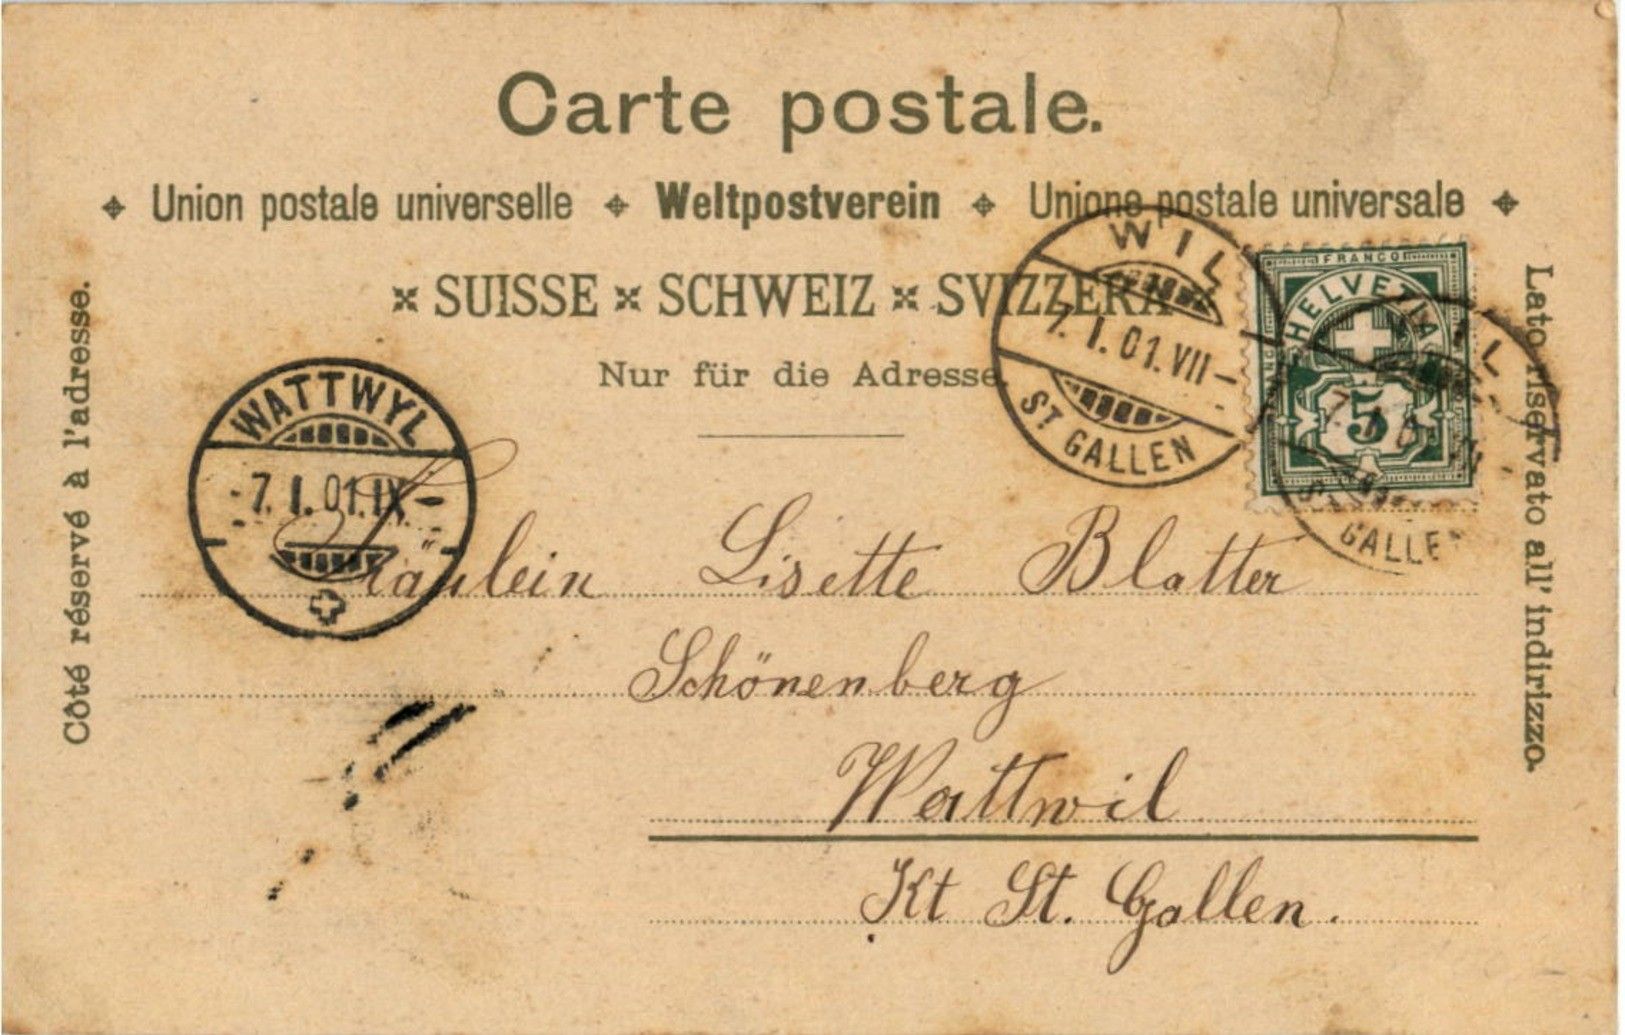 Carte postale.
Union postale universelle Weltpostverein Unione postale universale
SUISSE SCHWEIZ SVIZZERA
Nur für die Adresse.
Côté réservé à l'adresse.
Lato riservato all' indirizzo.
WIL
7. I. 01. VII –
ST GALLEN
FRANCO
HELVETIA
5
FRANCO
WIL
GALLEN
WATTWYL
7. I. 01. IX –
Fräulein Lisette Blatter
Schönenberg
Wattwil
Kt St. Gallen.